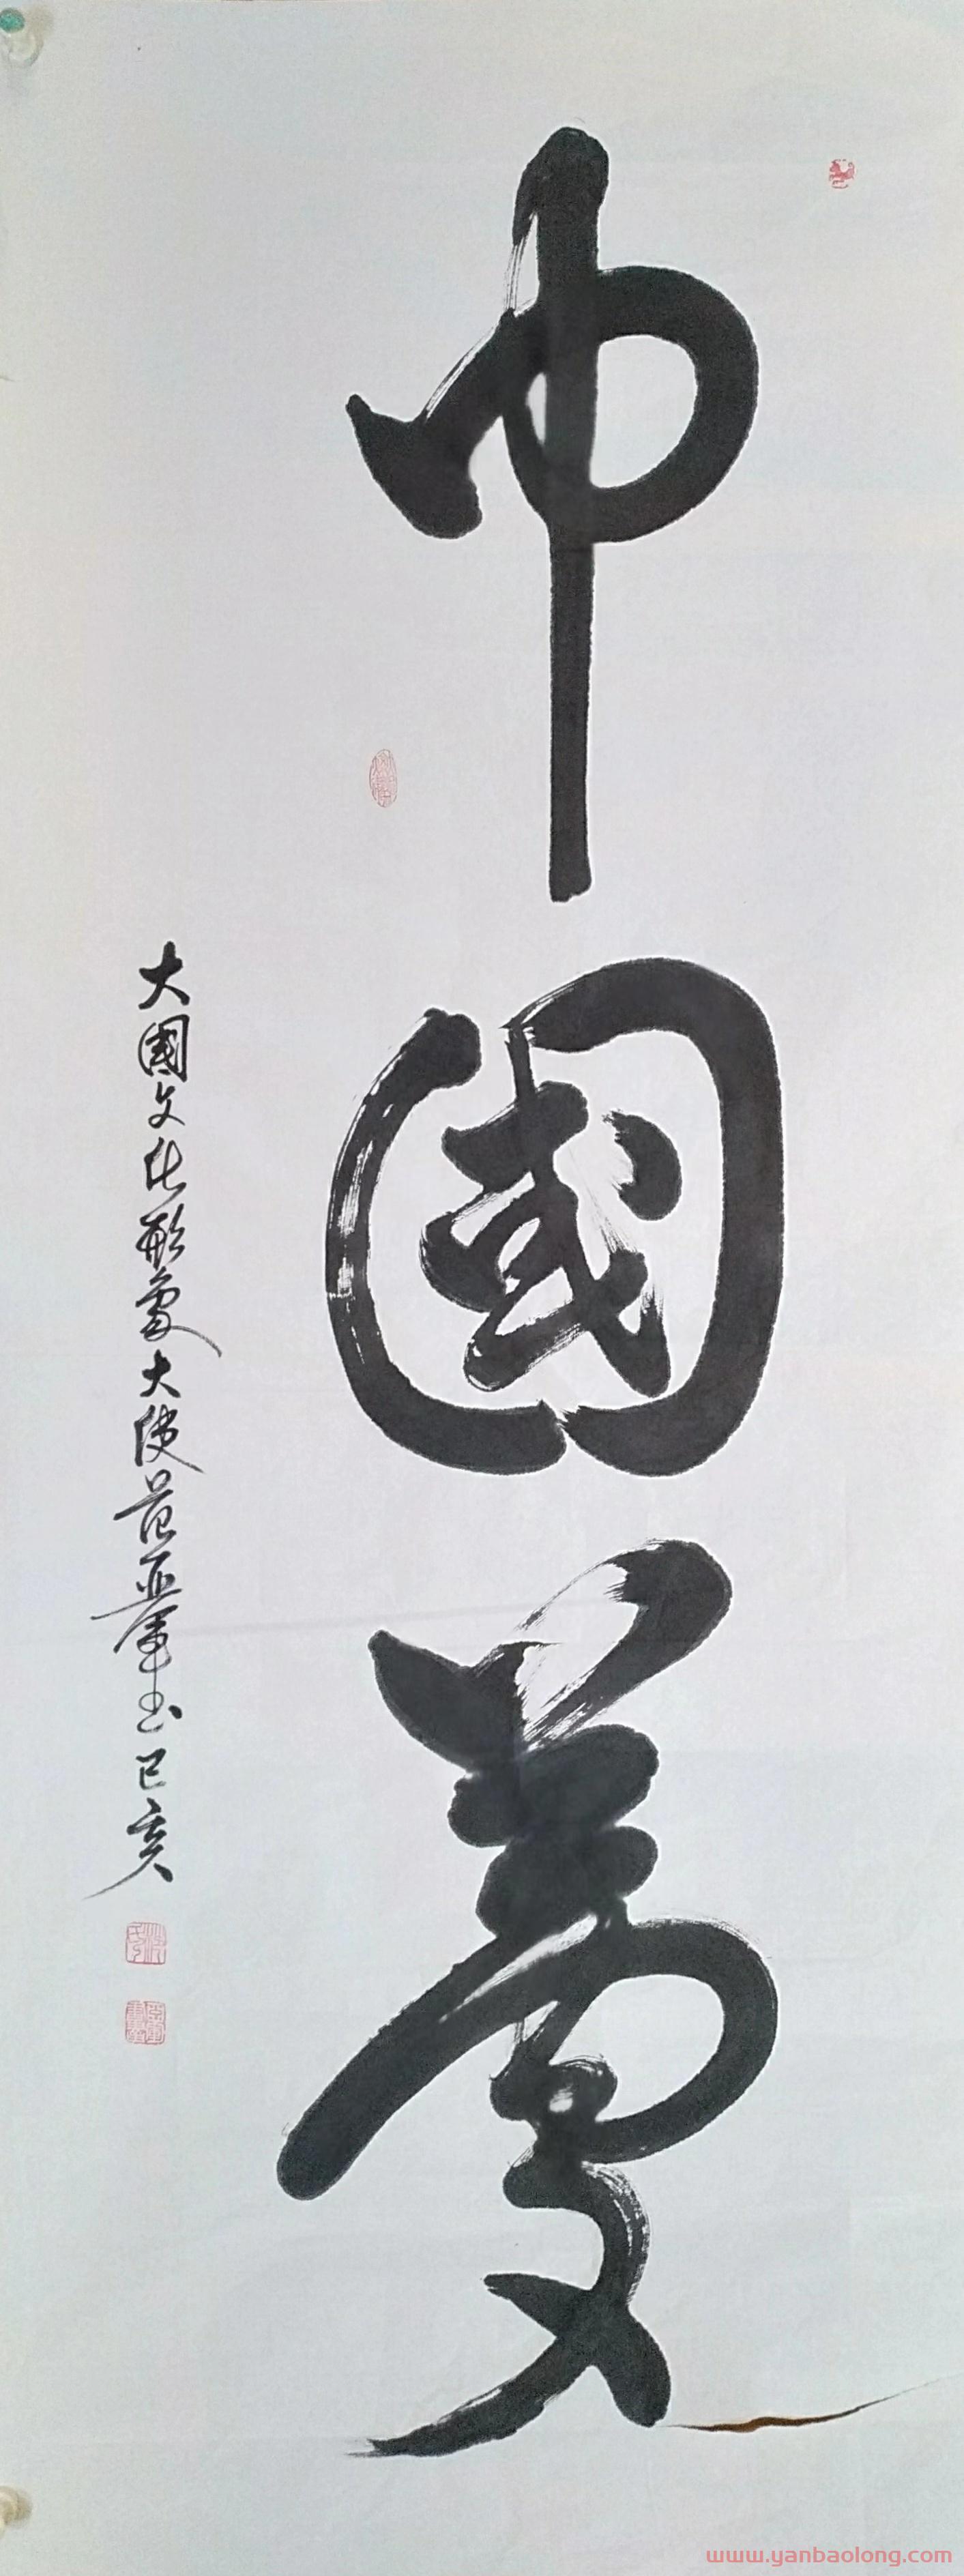 中國夢
大國文化形象大使范亚軍书己亥
www.yanbaolong.com